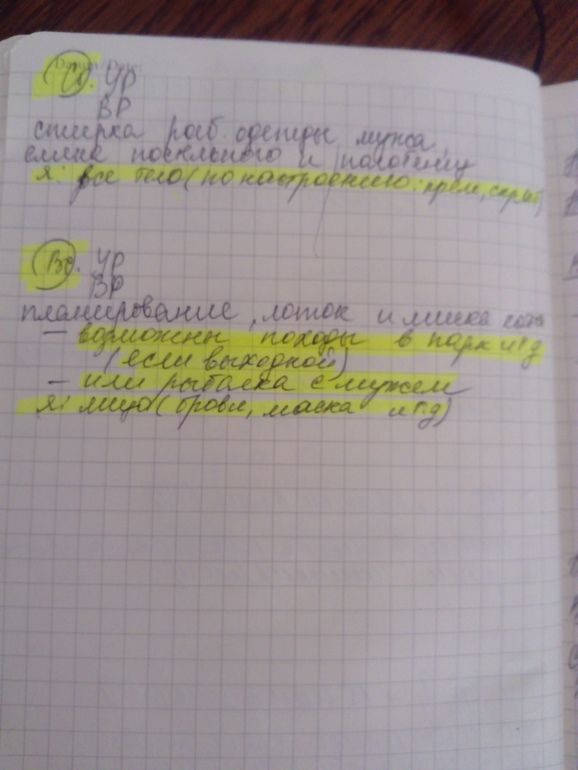 Datum/Date:
Сб. УР
ВР
стирка раб. одежды мужа,
смена постельного и полотенец
Я: все тело (по настроению: крем, скраб)
Вс. УР
ВР
планирование, лоток и миска кота
- возможны походы в парк и т д
(если выходной)
- или рыбалка с мужем
Я: лицо (брови, маска и т.д)